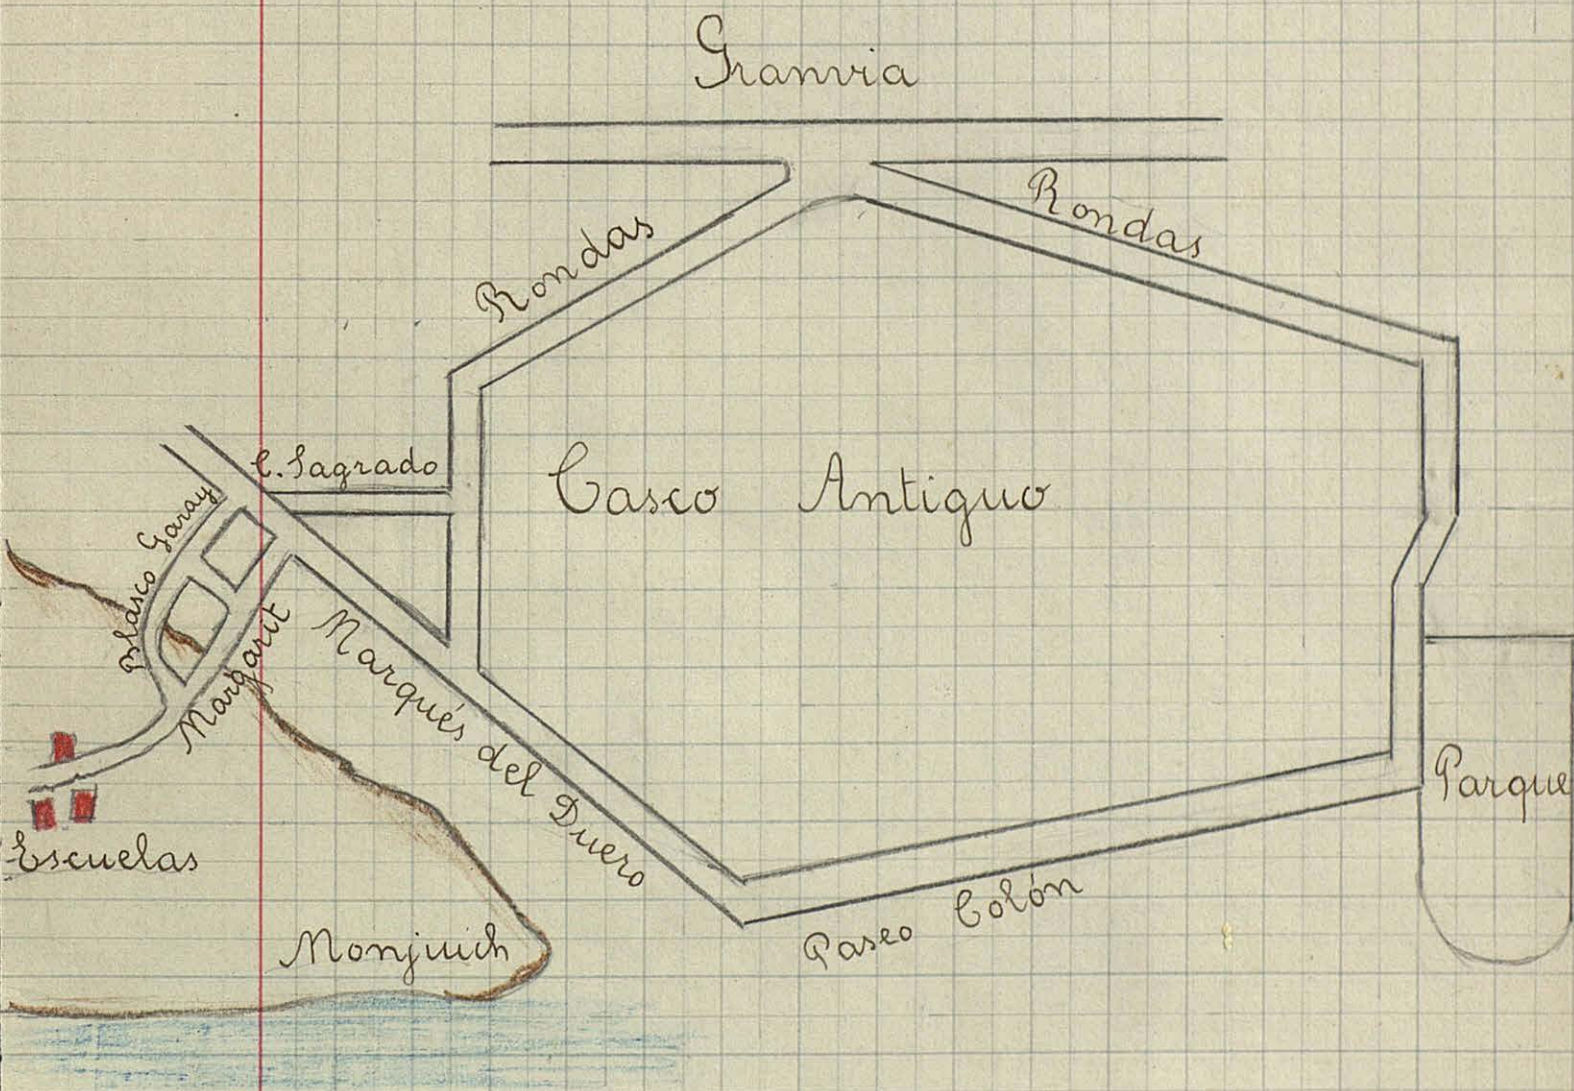 Granvia
Rondas
Rondas
C. Sagrado
Casco Antiguo
Blasco Garay
Margarit
Marqués del Duero
Parque
Escuelas
Paseo Colón
Monjuich